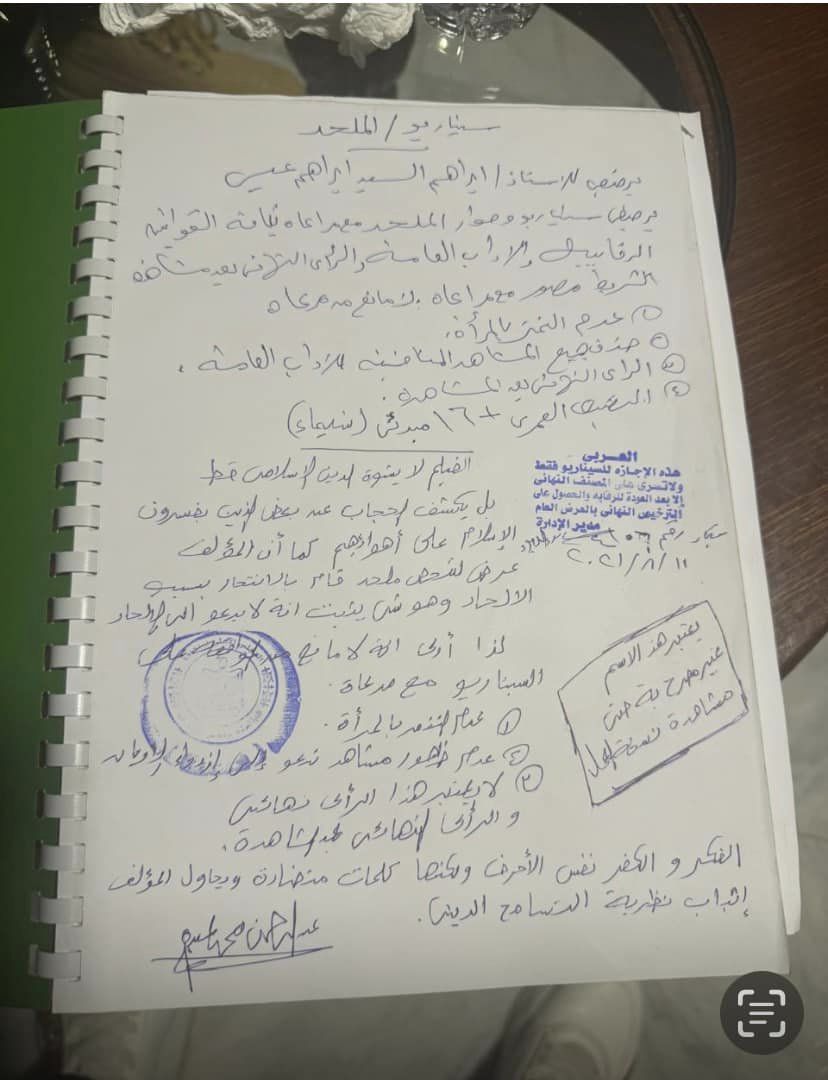 سيناريو / الملحد
يرخص للاستاذ / ابراهيم السيد ابراهيم عيسى
يرخص سيناريو وحوار الملحد مع مراعاه كافة القوانين
الرقابية والاداب العامة والرأى النهائى بعد مشاهدة
الشريط مصور مع مراعاه لا مانع مع مراعاه
① عدم التنمر بالمرأة.
② حذف جميع المشاهد المنافية للاداب العامة.
③ الراى النهائى بعد المشاهدة.
④ التصنيف العمرى +١٦ مبدئى (شيماء)
الفيلم لا يشوة الدين الإسلامى قط
بل يكشف الحجاب عن بعض الذين يفسرون
الإسلام على أهوائهم كما أن المؤلف
عرض لشخص ملحد قام بالانتحار بسبب
الالحاد وهو شئ يثبت انة لا يدعو الى الإلحاد
لذا أرى انة لا مانع من الموافقة على
السيناريو مع مرعاة.
① عدم التنمر بالمرأة.
② عدم ظهور مشاهد تدعو إلى إزدراء الأديان
③ لا يعتبر هذا الرأى نهائى
و الرأى النهائى بعد المشاهدة.
الفكر و الكفر نفس الأحرف ولكنها كلمات متضادة ويحاول المؤلف
إثبات نظرية التسامح الدينى.
عبد الرحمن محمد
العربى
هذه الإجازه للسيناريو فقط
ولاتسرى على المصنف النهائى
إلا بعد العودة للرقابه والحصول على
الترخيص النهائى بالعرض العام
مدير الإدارة
رقم
٢٠٢١/٨/١١
يعتبر هذا الاسم
غير مصرح بة حتى
مشاهدة نسخة العمل